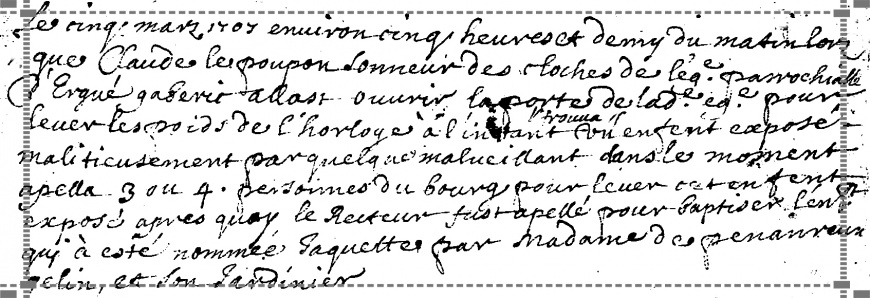 Le cinq marz 1707 environ cinq heures et demy du matin lors
que Claude le poupon sonneur des cloches de l'egᵉ. parrochialle
d'Ergué gaberic allast ouvrir la porte de lad.ᵉ egᵉ. pour
lever les poids de l'horloge à l'instant trouva un enfent exposé
maliticusement par quelque malveillant dans le moment
apella 3 ou 4. personnes du bourg pour lever cet enfent
exposé apres quoy le Recteur fust apellé pour baptiser l'enf.ᵗ
qui à esté nommée Paquette par Madame de penanreun
gelin, et son Jardinier